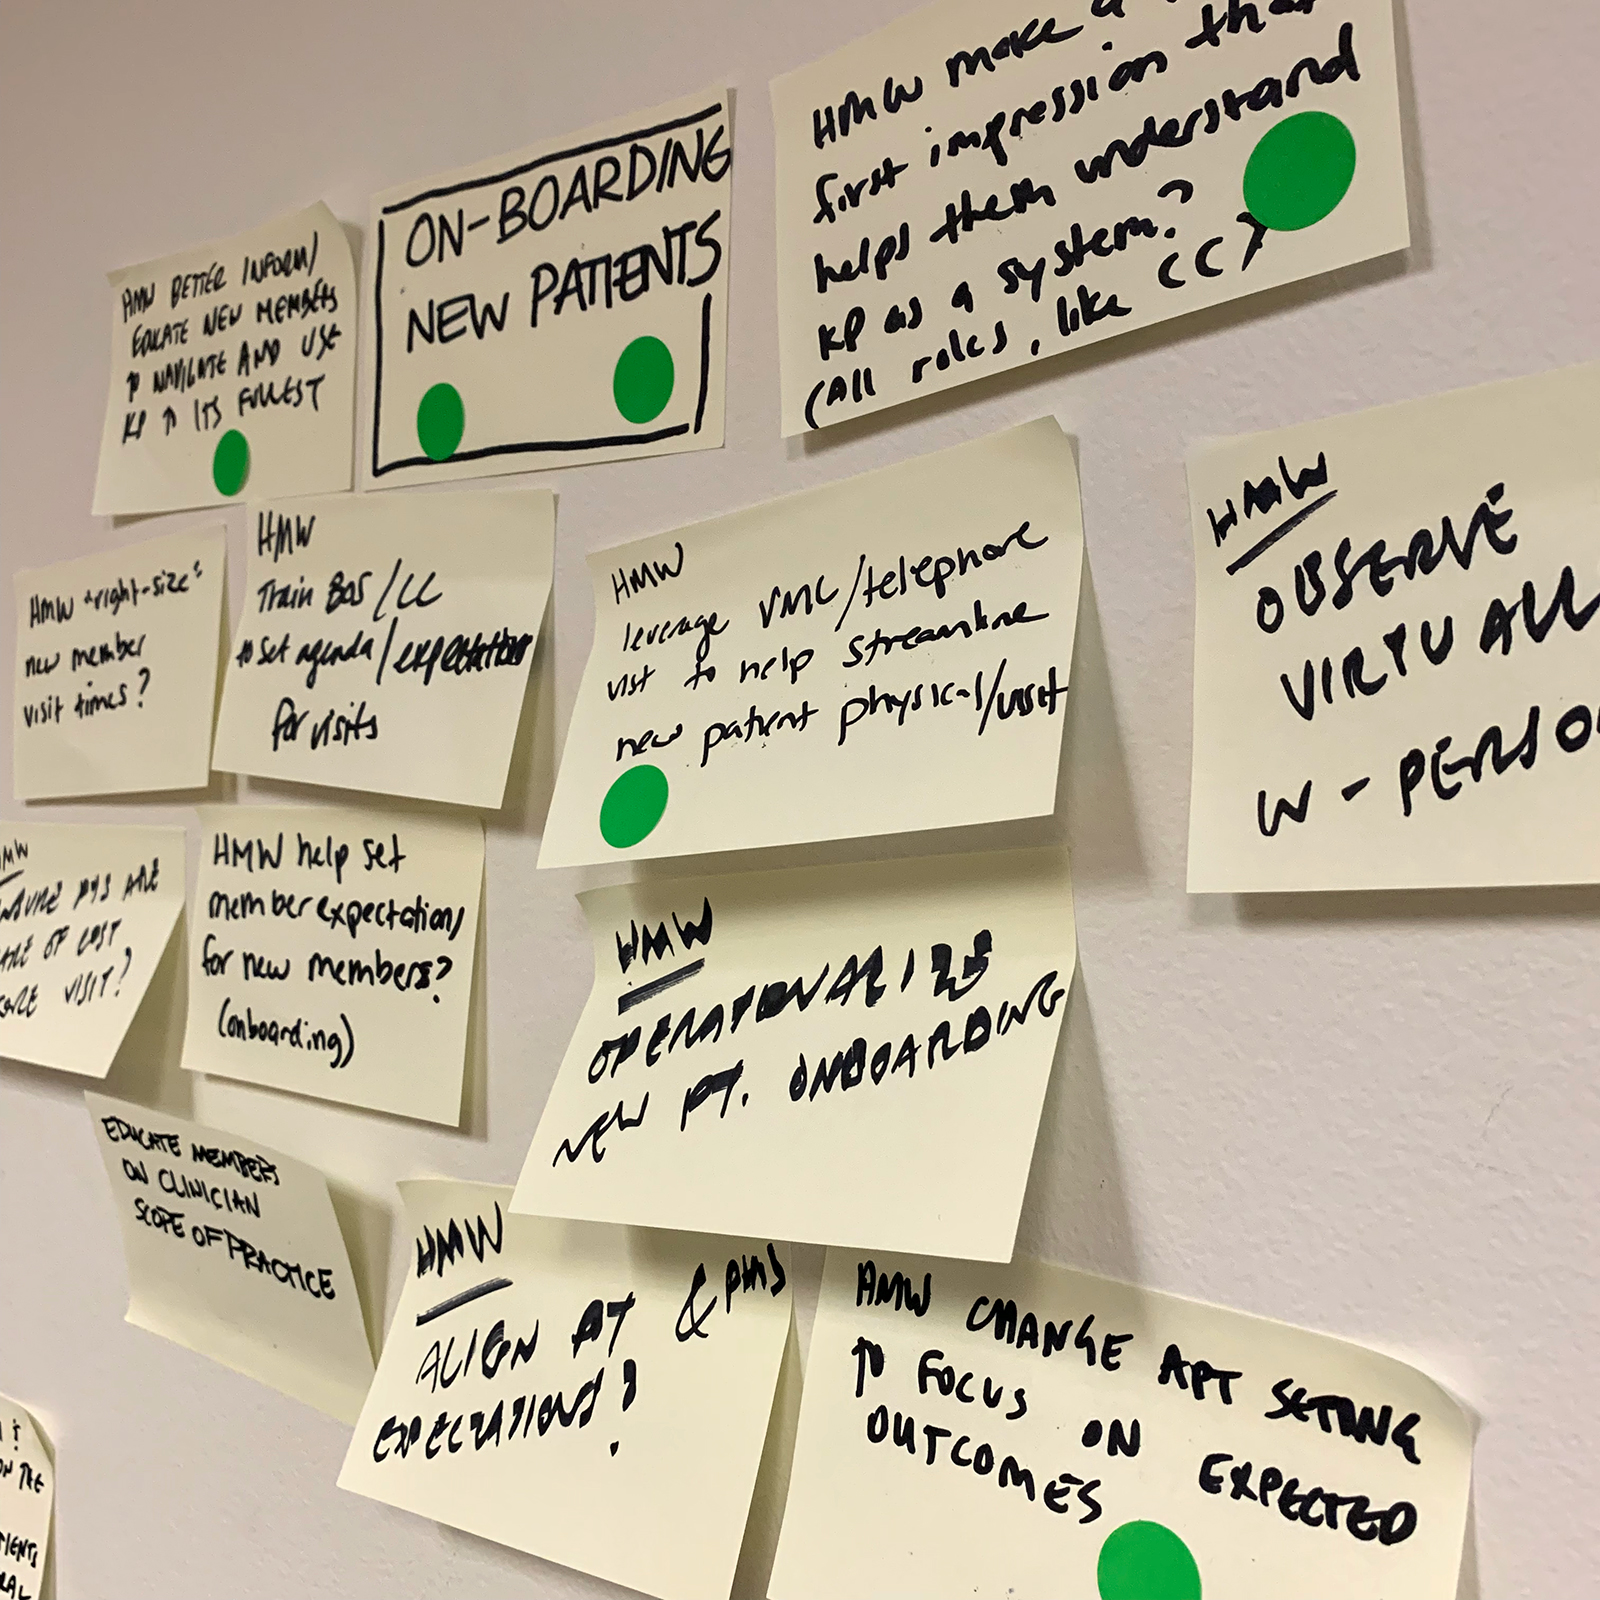 HMW BETTER INFORM/
EDUCATE NEW MEMBERS
TO NAVIGATE AND USE
KP TO ITS FULLEST
ON-BOARDING
NEW PATIENTS
HMW make a
first impression that
helps them understand
KP as a system?
(All roles, like CC)
HMW "right-size"
new member
visit times?
HMW
Train BOS/CC
to set agenda/expectations
for visits
HMW
leverage VMC/telephone
visit to help streamline
new patient physical/visit
HMW
OBSERVE
VIRTUALL
W-PERSO
HMW
PTS ARE
OF COST
VISIT?
HMW help set
member expectations
for new members?
(onboarding)
HMW
OPERATIONALIZE
NEW PT. ONBOARDING
EDUCATE MEMBERS
ON CLINICIAN
SCOPE OF PRACTICE
HMW
ALIGN PT & PHYS
EXPECTATIONS?
HMW CHANGE APT SETTING
TO FOCUS ON EXPECTED
OUTCOMES
ON THE